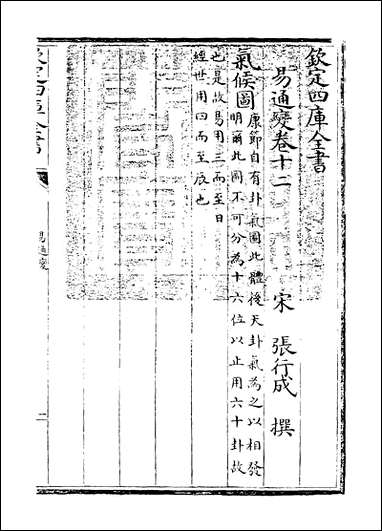 欽定四庫全書
易通變卷十二
宋 張行成 撰
氣候圖
康節自有卦氣圖此體後天卦氣為之以相發
明爾此圖不可分為十六位以止用六十卦故
也是故易用三而至日
經世用四而至辰也
欽定四庫全書
易通變
二